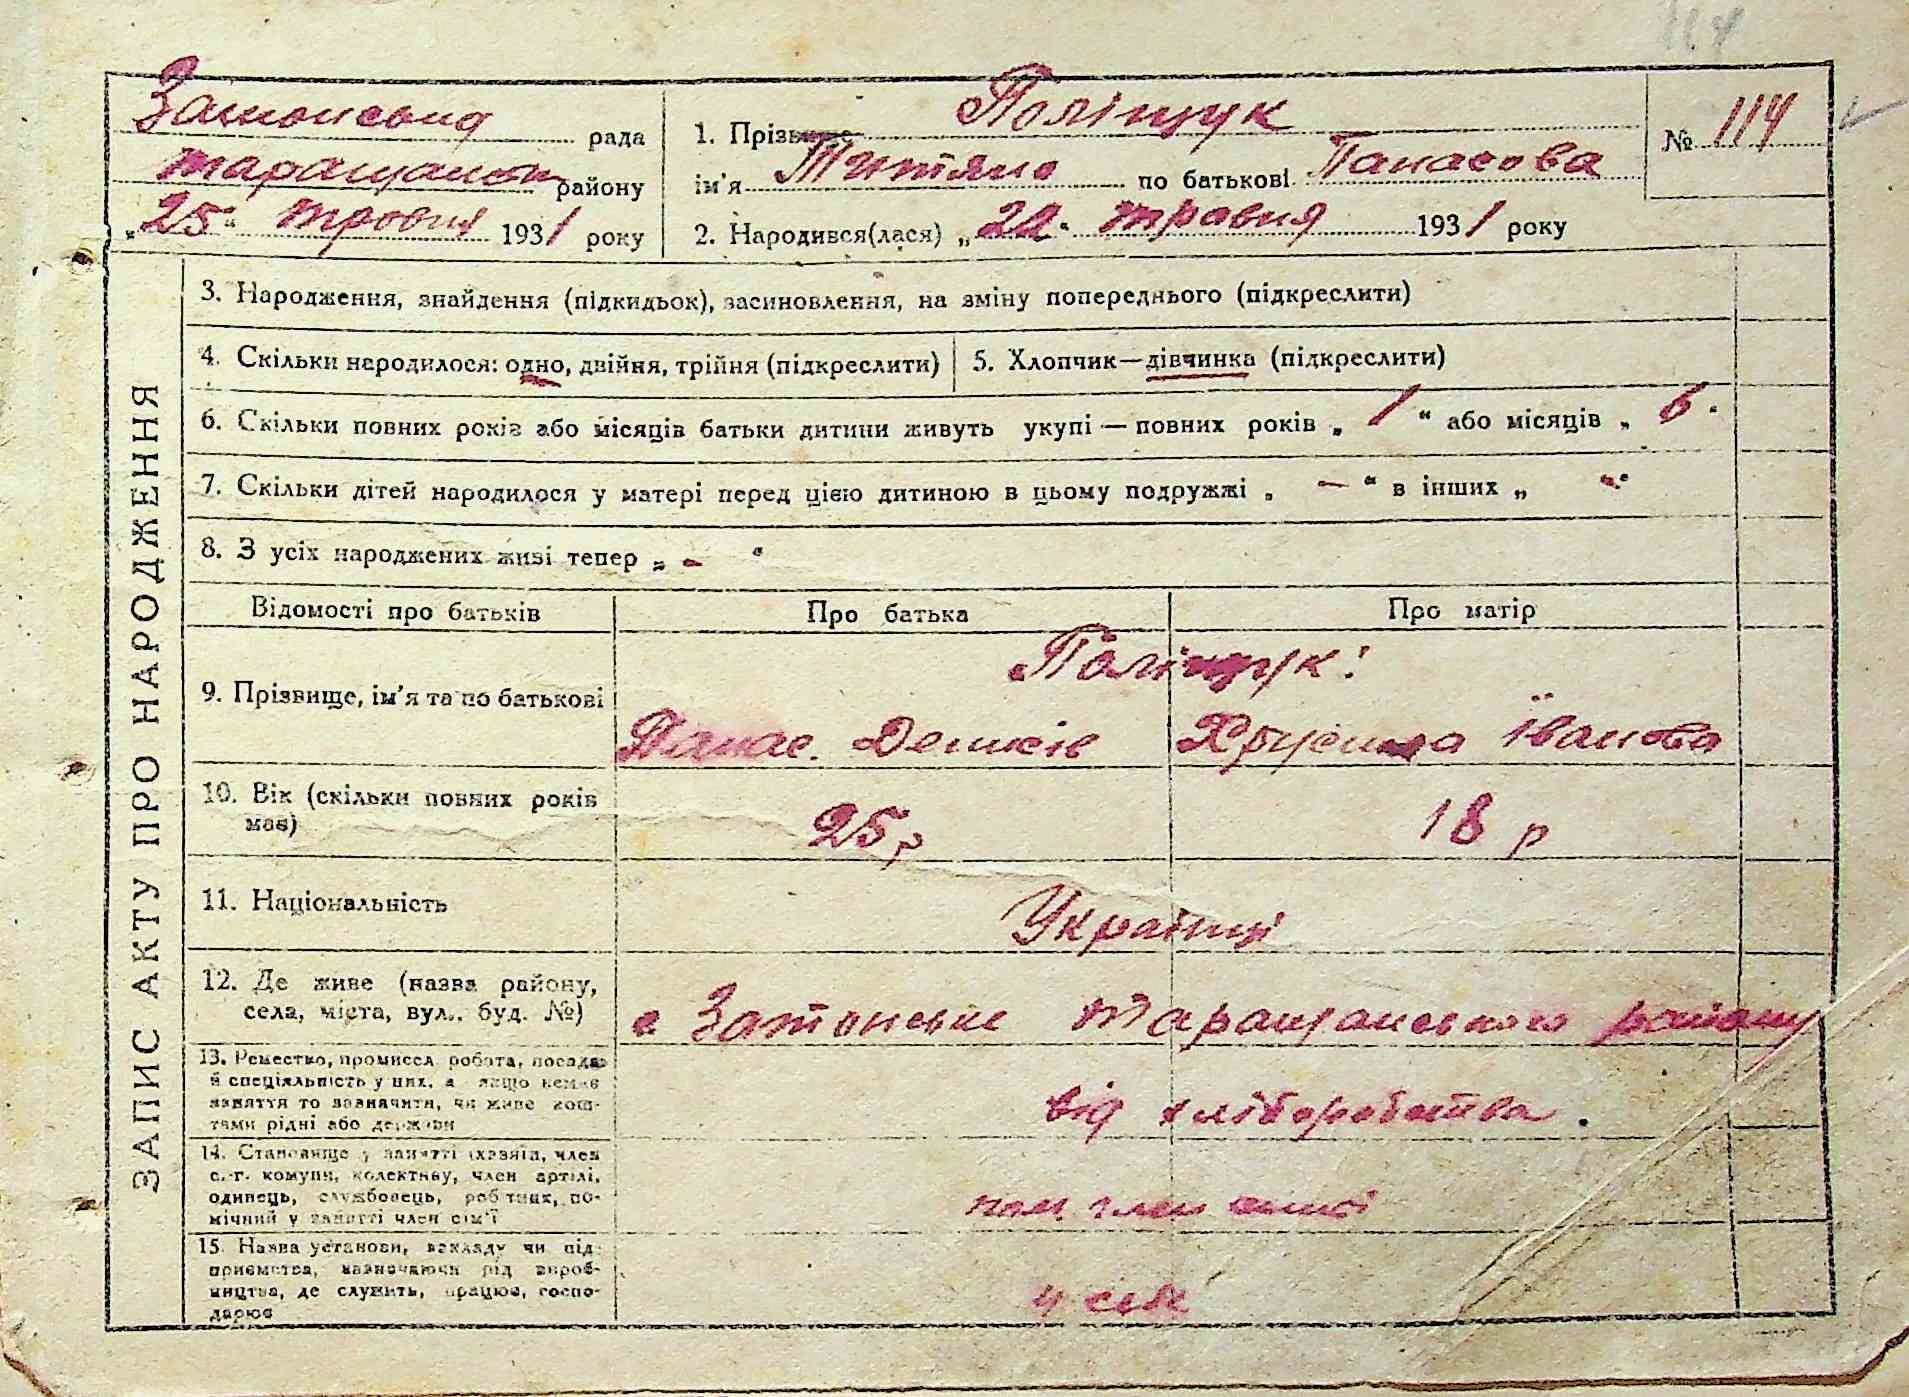 114
Затонська рада
Таращанськ району
„25“ травня 1931 року
1. Прізвище Поліщук
ім'я Титяна по батькові Панасова
2. Народився(лася) „22“ травня 1931 року
№ 114
ЗАПИС АКТУ ПРО НАРОДЖЕННЯ
3. Народження, знайдення (підкидьок), засиновлення, на зміну попереднього (підкреслити)
4. Скільки народилося: одно, двійня, трійня (підкреслити)
5. Хлопчик—дівчинка (підкреслити)
6. Скільки повних років або місяців батьки дитини живуть укупі — повних років „ 1 “ або місяців „ 6 “
7. Скільки дітей народилося у матері перед цією дитиною в цьому подружжі „ — “ в інших „ - “
8. З усіх народжених живі тепер „ - “
Відомості про батьків
Про батька
Про матір
9. Прізвище, ім'я та по батькові
Поліщук:
Панас. Денисів
Хрусина Іванова
10. Вік (скільки повних років
має)
25 р
18 р
11. Національність
Українці
12. Де живе (назва району,
села, міста, вул., буд. №)
с Затонське Таращанського району
13. Ремество, промисел, робота, посада
й спеціяльність у них, а якщо немає
заняття то зазначити, чи живе кош-
тами рідні або держави
від хліборобства.
14. Становище у занятті (хазяїн, член
с.-г. комуни, колективу, член артілі,
одинець, службовець, робітник, по-
мічний у занятті член сім'ї
пом. член сімї
15. Назва установи, закладу чи під-
приємства, зазначаючи рід вироб-
ництва, де служить, працює, госпо-
дарює
у себе